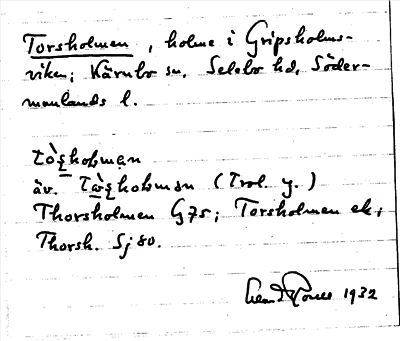 Torsholmen, holme i Gripsholms-
viken; Kärnbo sn, Selebo hd, Söder-
manlands l.
tò̱ʂhoḷmən
äv. tà̱ʂhoḷmən (Trol. y.)
Thorsholmen G75; Torsholmen ek;
Thorsh. Sj 80.
1932